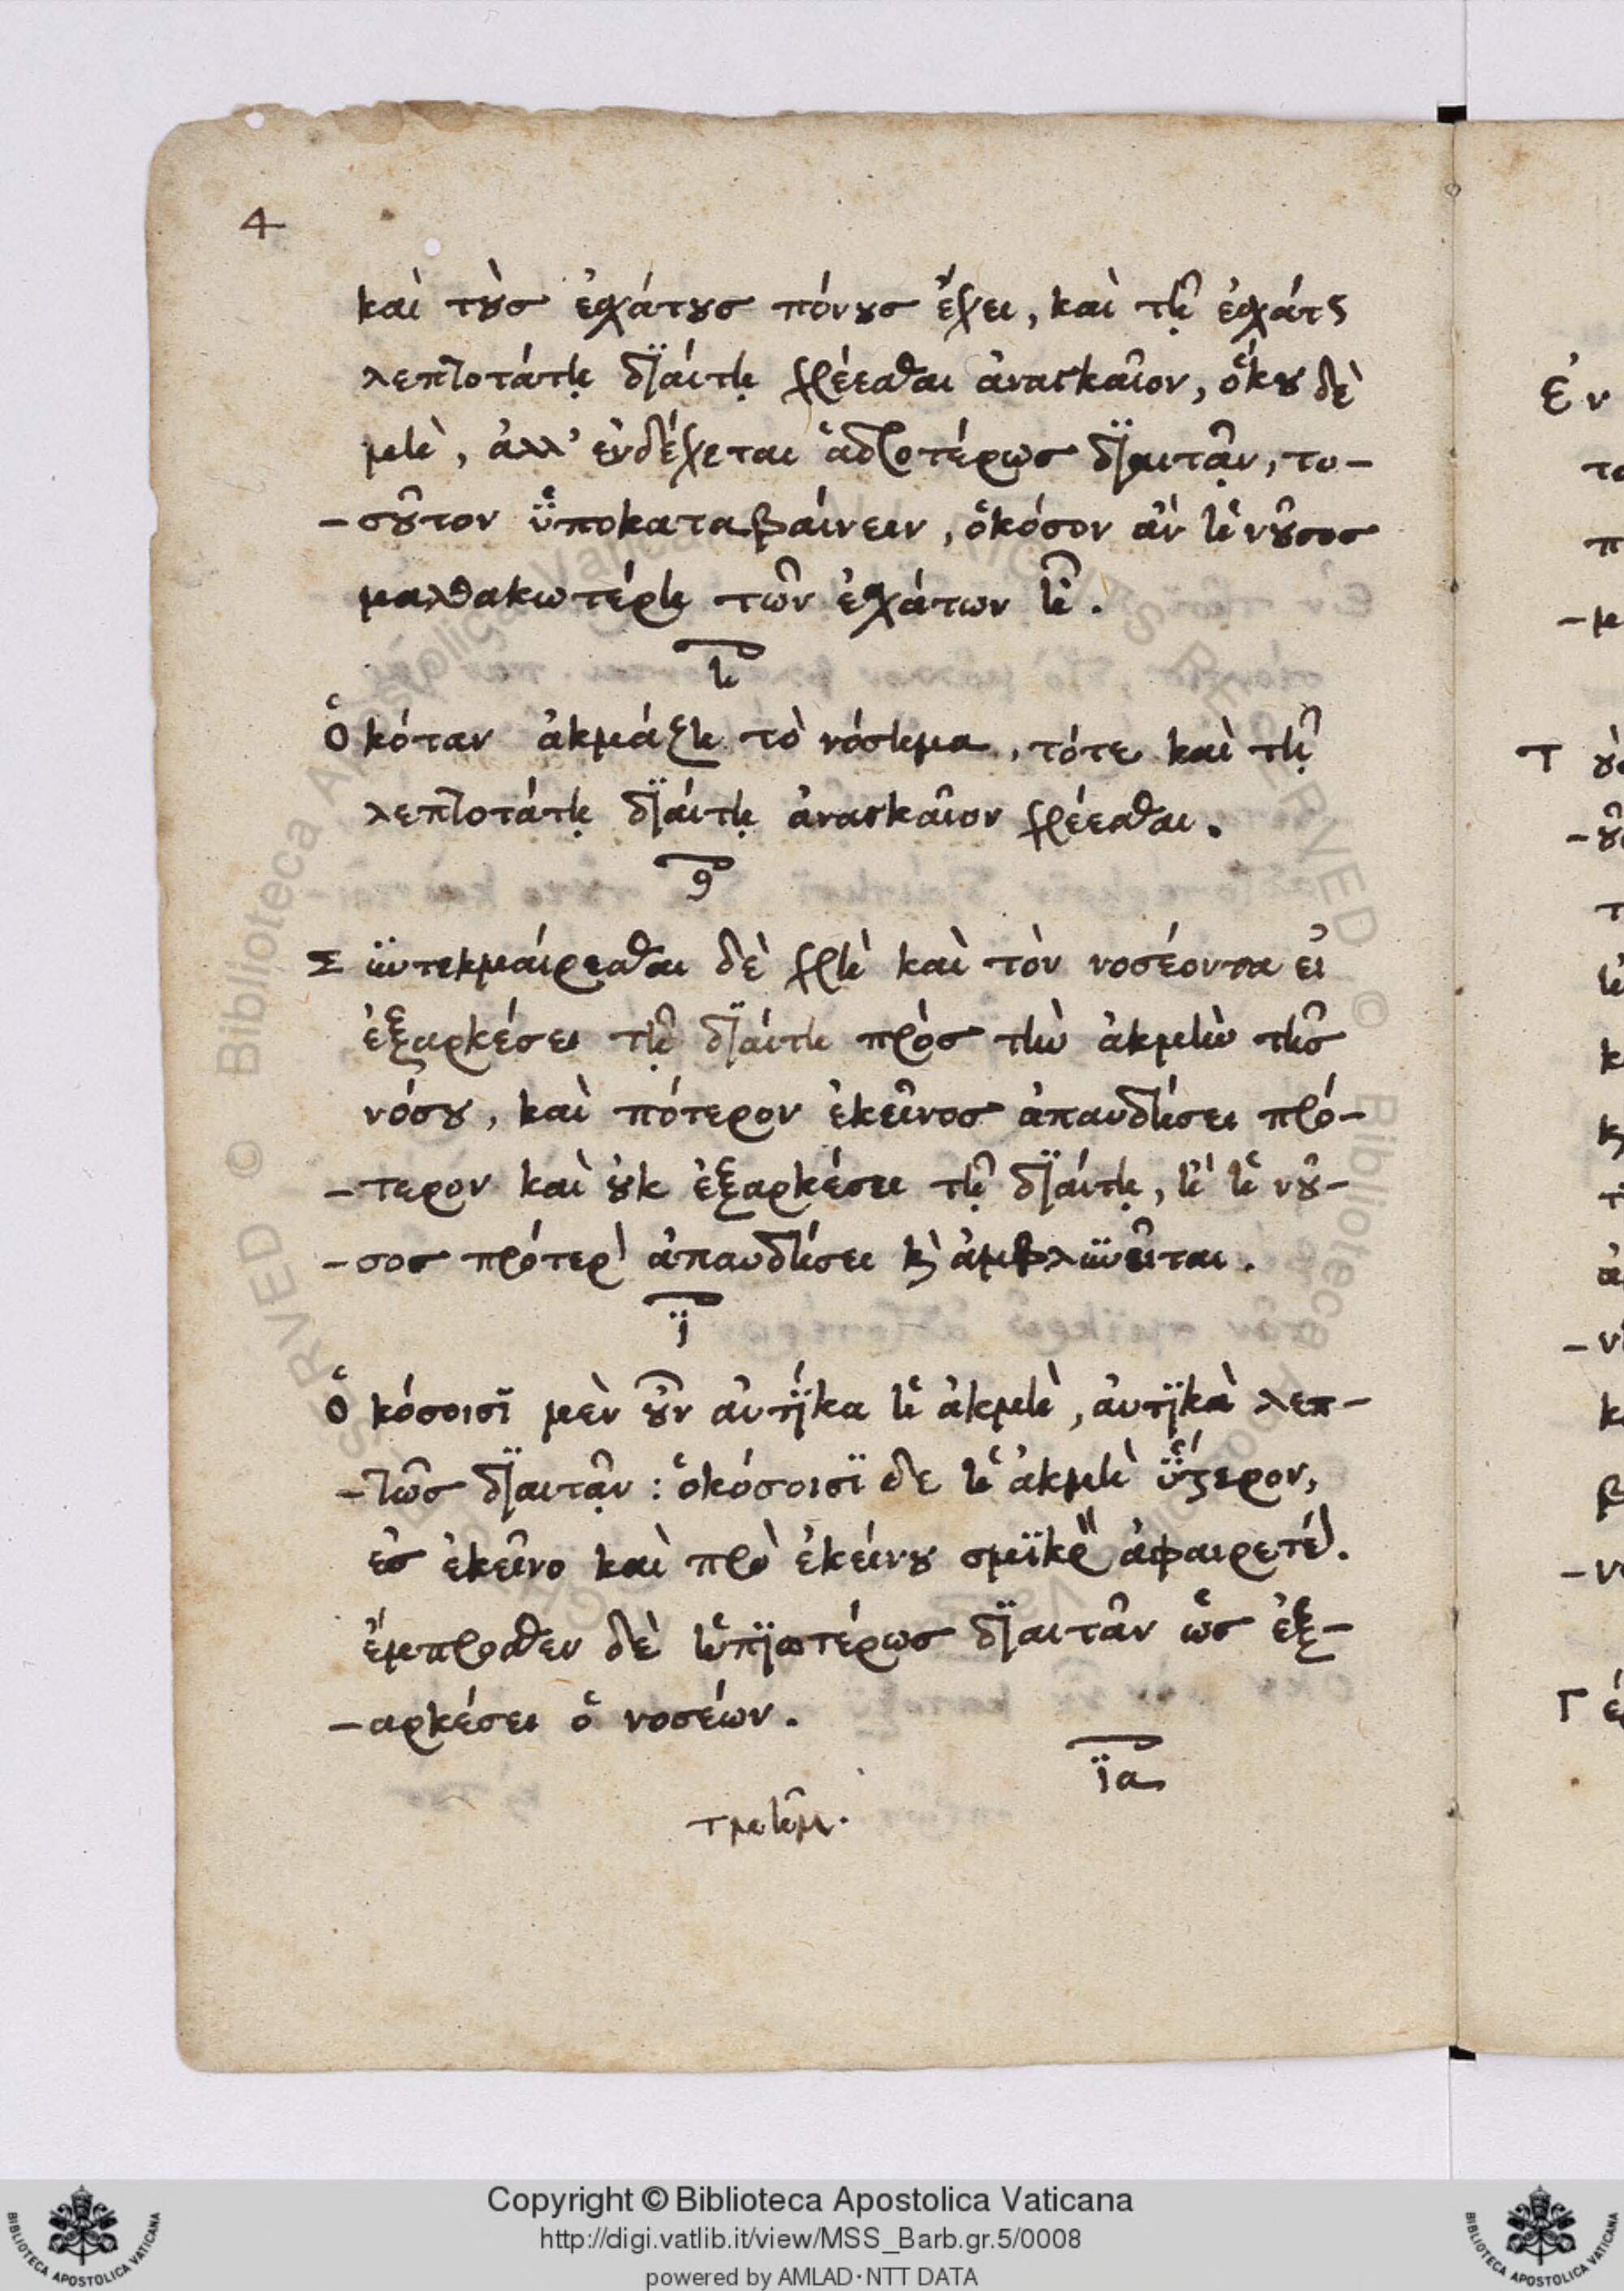 4
καὶ τοὺς ἐσχάτους πόνους ἔχει, καὶ τῇ ἐσχάτως
λεπτοτάτῃ διαίτῃ χρέεσθαι ἀναγκαῖον, ὅκου δὲ
μὴ, ἀλλ' ἐνδέχεται ἁδροτέρως διαιτᾷν, το-
-σοῦτον ὑποκαταβαίνειν, ὁκόσον ἂν ἡ νοῦσος
μαλθακωτέρη τῶν ἐσχάτων ᾖ.
η
Ὁκόταν ἀκμάζῃ τὸ νόσημα, τότε καὶ τῇ
λεπτοτάτῃ διαίτῃ ἀναγκαῖον χρέεσθαι.
θ
Συντεκμαίρεσθαι δὲ χρὴ καὶ τὸν νοσέοντα εἰ
ἐξαρκέσει τῇ διαίτῃ πρὸς τὴν ἀκμὴν τῆς
νόσου, καὶ πότερον ἐκεῖνος ἀπαυδήσει πρό-
-τερον καὶ οὐκ ἐξαρκέσει τῇ διαίτῃ, ἢ ἡ νοῦ-
-σος πρότερον ἀπαυδήσει καὶ ἀμβλυνεῖται.
ϊ
Ὁκόσοισϊ μὲν οὖν αὐτίκα ἡ ἀκμὴ, αὐτίκα λεπ-
-τῶς διαιτᾷν: ὁκόσοισϊ δε ἡ ἀκμὴ ὕστερον,
ἐς ἐκεῖνο καὶ πρὸ ἐκείνου σμικρὸν ἀφαιρετέον.
ἔμπροσθεν δὲ ἡπιωτέρως διαιτᾶν ὡς ἐξ-
-αρκέσει ὁ νοσέων.
ϊα
τμῆμ.
Εν
Copyright © Biblioteca Apostolica Vaticana
http://digi.vatlib.it/view/MSS_Barb.gr.5/0008
powered by AMLAD·NTT DATA